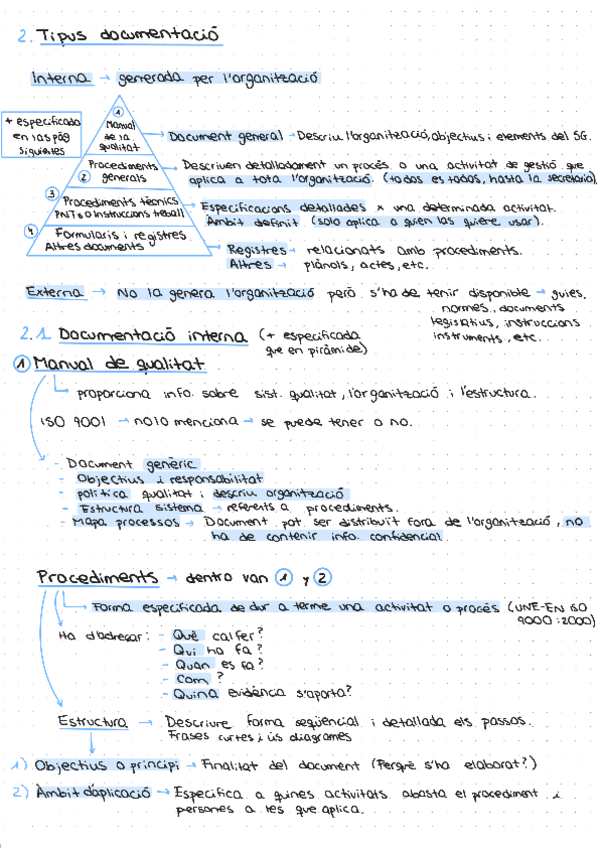 2. Tipus documentació
Interna → generada per l'organització
+ especificada
en las pàg
siguientes
① Manual
de la
qualitat
→ Document general → Descriu l'organització, objectius i elements del SG.
Procediments
② generals
→ Descriuen detalladament un procés o una activitat de gestió que
aplica a tota l'organització. (todos es todos, hasta la secretaria)
③ Procediments tècnics
PNT s o Instruccions treball
→ Especificacions detallades x una determinada activitat.
Àmbit definit (solo aplica a quien las quiere usar).
④ Formularis i registres
Altres documents
→ Registres → relacionats amb procediments.
Altres → plànols, actes, etc.
Externa → No la genera l'organització però s'ha de tenir disponible → guies,
normes, documents
legislatius, instruccions
instruments, etc.
2.1 Documentació interna (+ especificada
que en pirámide)
① Manual de qualitat
proporciona info. sobre sist. qualitat, l'organització i l'estructura.
ISO 9001 → no lo menciona → se puede tener o no.
- Document genèric
- Objectius i responsabilitat
- política qualitat i descriu organització
- Estructura sistema → referents a procediments.
- Mapa processos → Document pot ser distribuït fora de l'organització, no
ha de contenir info. confidencial
Procediments → dentro van ① y ②
Forma especificada de dur a terme una activitat o procés (UNE-EN ISO
9000:2000)
Ha d'adreçar: - Què cal fer?
- Qui ho fa?
- Quan es fa?
- Com?
- Quina evidència s'aporta?
Estructura → Descriure forma seqüencial i detallada els passos.
Frases curtes i ús diagrames
1) Objectius o principi → Finalitat del document (Perquè s'ha elaborat?)
2) Àmbit d'aplicació → Especifica a quines activitats abasta el procediment i
persones a les que aplica.